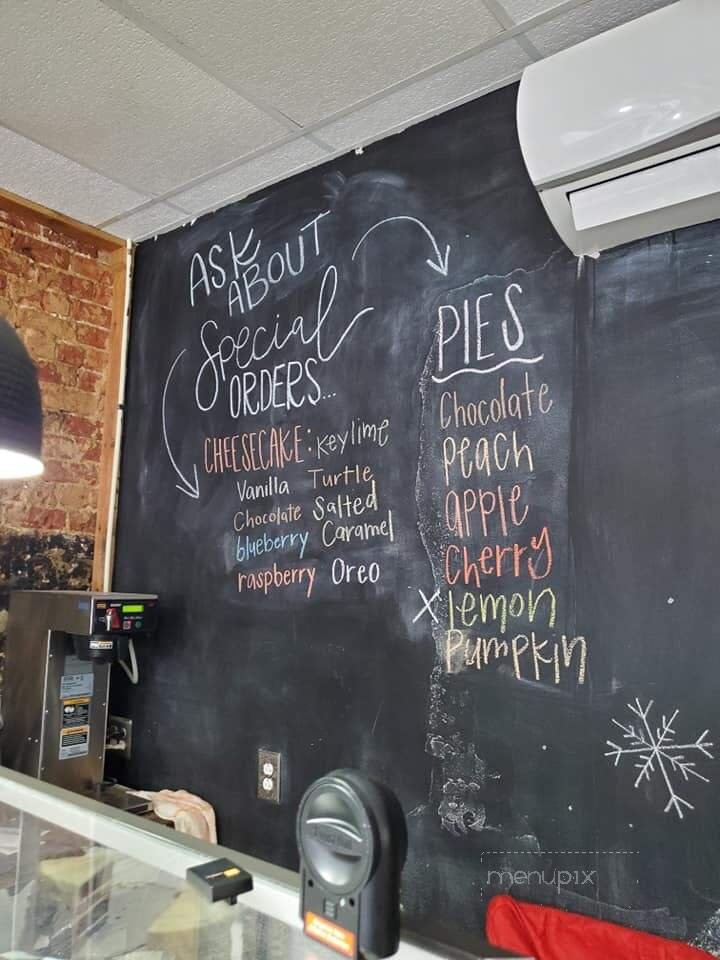 ASK
ABOUT
Special
ORDERS...
CHEESECAKE: Keylime
Vanilla Turtle
Chocolate Salted
blueberry Caramel
raspberry Oreo
PIES
Chocolate
Peach
apple
Cherry
X Lemon
Pumpkin
menupix